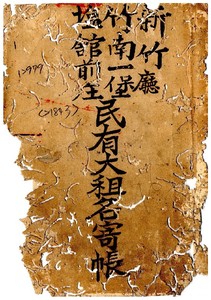 新竹廳
竹南一堡
塩館前庄
民有大租名寄帳